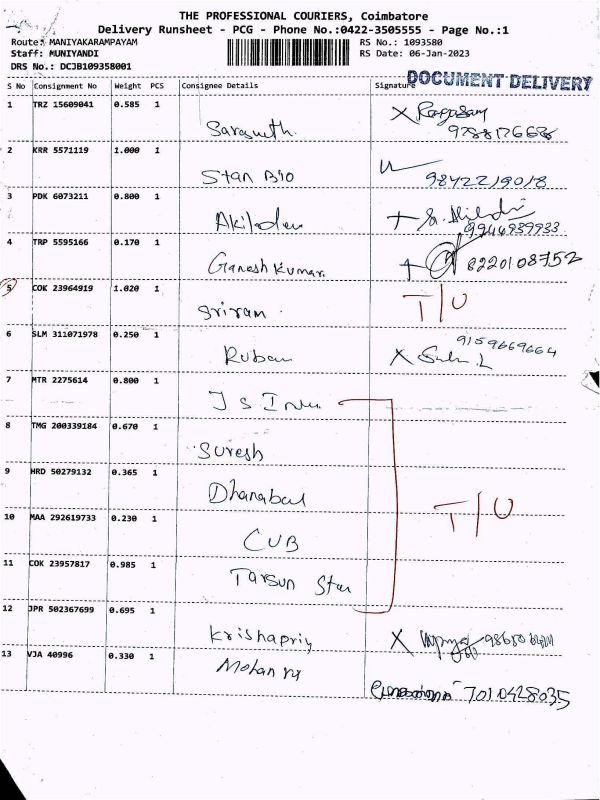 THE PROFESSIONAL COURIERS, Coimbatore
Delivery Runsheet - PCG - Phone No.:0422-3505555 - Page No.:1
Route: MANIYAKARAMPAYAM RS No.: 1093580
Staff: MUNIYANDI RS Date: 06-Jan-2023
DRS No.: DCJB109358001
DOCUMENT DELIVERY
S No Consignment No Weight PCS Consignee Details Signature
1 TRZ 15609041 0.585 1
2 KRR 5571119 1.000 1
Stan Bio 9842219018
3 PDK 6073211 0.800 1
9944939933
4 TRP 5595166 0.170 1
Ganesh Kumar 8220108752
5 COK 23964919 1.020 1
Sriram T/U
6 SLM 311071978 0.250 1
Ruban 9159669664
7 MTR 2275614 0.800 1
8 TMG 200339184 0.670 1
Suresh
9 HRD 50279132 0.365 1
Dhanabal
T/U
10 MAA 292619733 0.230 1
CUB
11 COK 23957817 0.985 1
Tarsun Star
12 JPR 502367699 0.695 1
Krishapriy
13 VJA 40996 0.330 1
Mohan 7010428035